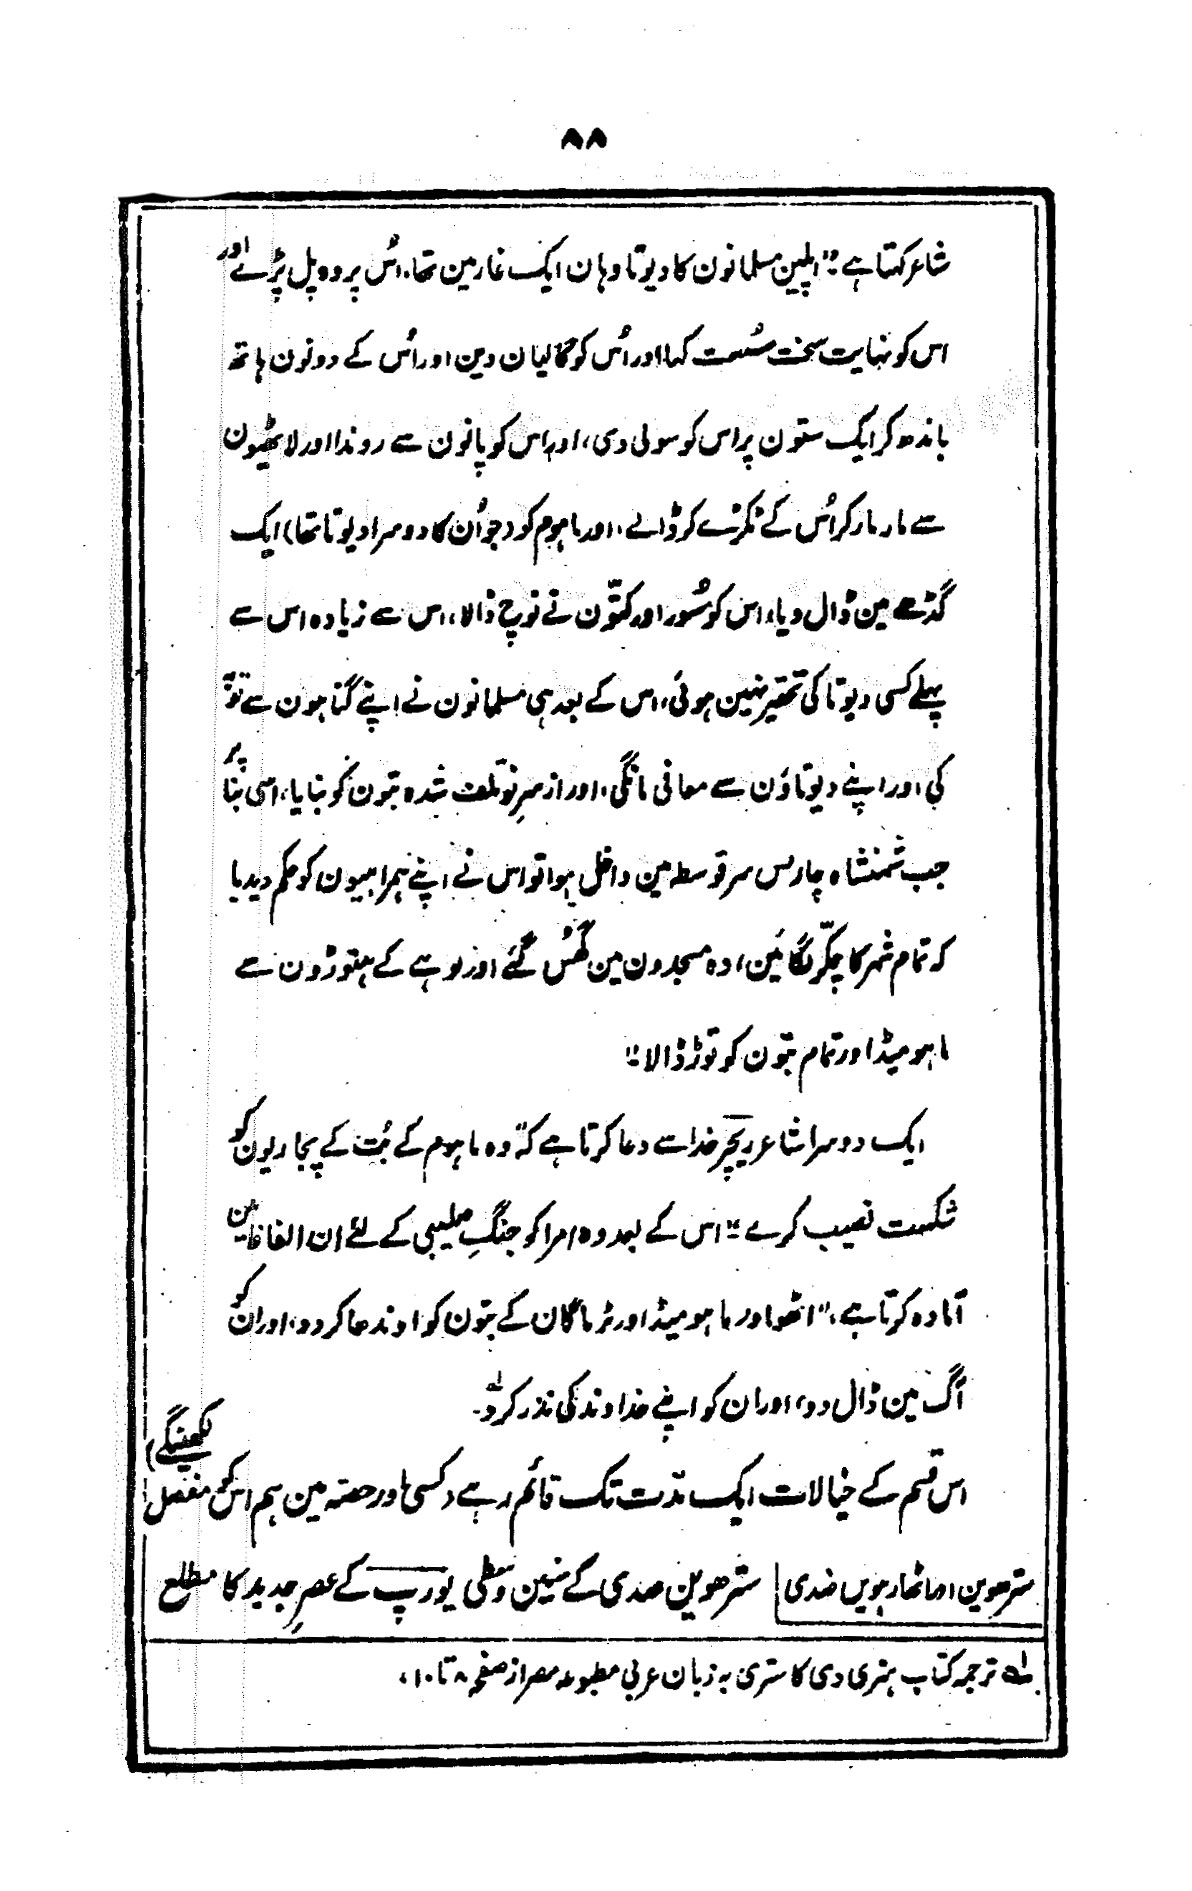 ۸۸
شاعر کہتا ہے:" اپلین مسلمانون کا دیوتا وہان ایک غار مین تھا، اُس پر وہ پل پڑے اور
اس کو نہایت سخت سُست کہا اور اُس کو گالیان دین اور اُس کے دونون ہاتھ
باندھ کر ایک ستون پر اس کو سولی دی، اور اس کو پانون سے روندا اور لاٹھیون
سے مار مار کر اُس کے ٹکڑے کر ڈالے، اور ماہوم کو (جو اُن کا دوسرا دیوتا تھا) ایک
گڈھے مین ڈال دیا، اس کو سُور اور کتّون نے نوچ ڈالا، اس سے زیادہ اس سے
پہلے کسی دیوتا کی تحقیر نہین ہوئی، اس کے بعد ہی مسلمانون نے اپنے گناہون سے توبہ
کی اور اپنے دیوتاؤن سے معافی مانگی، اور از سرِ نو تلف شدہ بتون کو بنایا، اسی بنا پر
جب شہنشاہ چارلس سرقوسطہ مین داخل ہوا تو اس نے اپنے ہمراہیون کو حکم دیدیا
کہ تمام شہر کا چکّر لگائین، وہ مسجدون مین گھُس گئے اور لوہے کے ہتوڑون سے
ماہومیڈ اور تمام بتون کو توڑ ڈالا"
ایک دوسرا شاعر ریچر خدا سے دعا کرتا ہے کہ" وہ ماہوم کے بُت کے پجاریون کو
شکست نصیب کرے" اس کے بعد وہ امرا کو جنگِ صلیبی کے لئے ان الفاظ مین
آمادہ کرتا ہے،" اٹھو اور ماہومیڈ اور ٹرماگان کے بتون کو اوندھا کر دو، اور ان کو
آگ مین ڈال دو، اور ان کو اپنے خداوند کی نذر کر دو۔
اس قسم کے خیالات ایک مدّت تک قائم رہے (کسی اور حصّہ مین ہم اس کو مفصل لکھینگے)
سترھوین اور اٹھارہویں صدی سترھوین صدی کے سنین وسطی یورپ کے عصرِ جدید کا مطلع
لہ ترجمہ کتاب ہنری دی کاستری بہ زبان عربی مطبوعہ مصر از صفحہ ۸ تا ۱۰،